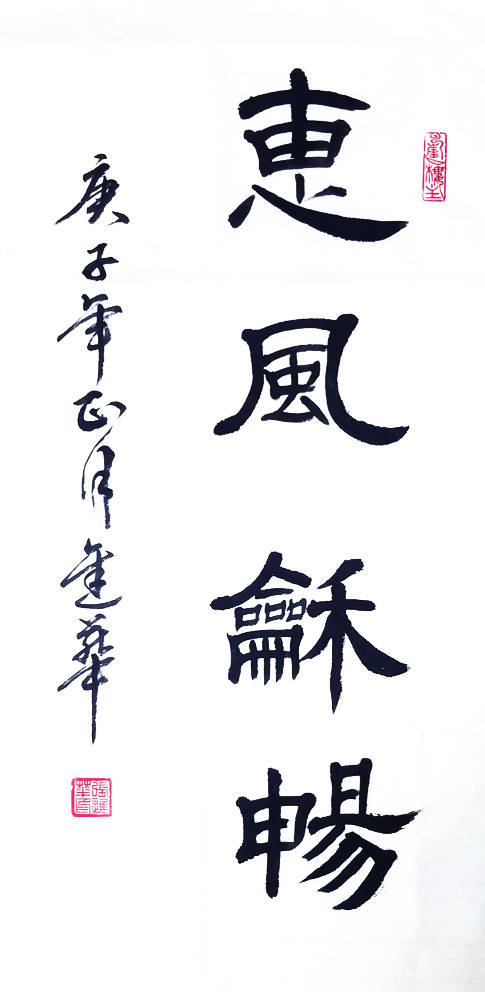 惠風龢暢
庚子年正月進華